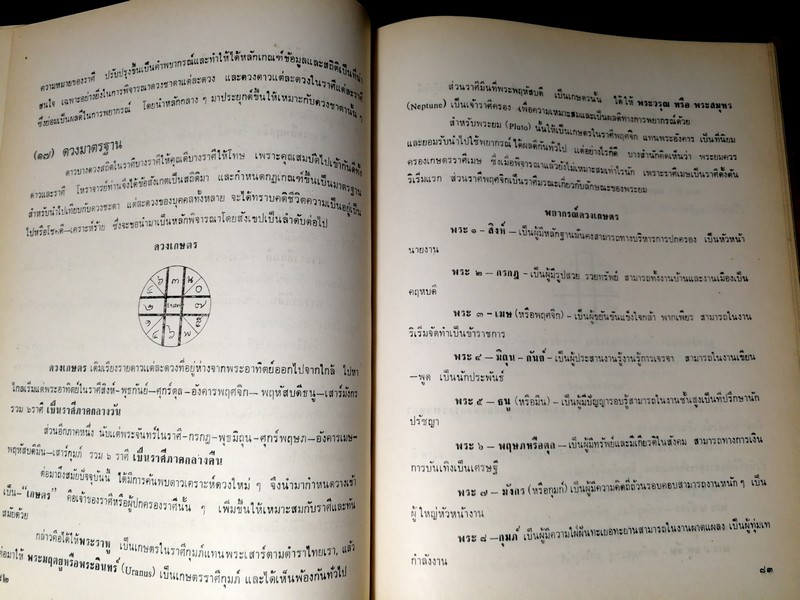 ความหมายของราศี ปรับปรุงขึ้นเป็นคำพยากรณ์และทำให้ได้หลักเกณฑ์ข้อมูลและสถิติเป็นที่น่า
สนใจ เฉพาะอย่างยิ่งในการพิจารณาดวงชาตาแต่ละดวง และดวงดาวแต่ละดวงในราศีแต่ละราศี
ซึ่งย่อมเป็นผลดีในการพยากรณ์ โดยนำหลักกลาง ๆ มาประยุกต์ขึ้นให้เหมาะกับดวงชาตานั้น ๆ
(๑๗) ดวงมาตรฐาน
ดาวบางดวงสถิตในราศีบางราศีให้คุณดีบางราศีให้โทษ เพราะคุณสมบัติไปเข้ากันดีทั้ง
ดาวและราศี โหราจารย์ท่านจึงได้ข้อสังเกตเป็นสถิติมา และกำหนดกฎเกณฑ์ขึ้นเป็นมาตรฐาน
สำหรับนำไปเทียบกับดวงชะตา แต่ละดวงของบุคคลทั้งหลาย จะได้ทราบคดีชีวิตความเป็นอยู่เป็น
ไปหรือโชคดี—เคราะห์ร้าย ซึ่งจะขอนำมาเป็นหลักพิจารณาโดยสังเขปเป็นลำดับต่อไป
ดวงเกษตร
ดวงเกษตร เดิมเรียงรายดาวแต่ละดวงที่อยู่ห่างจากพระอาทิตย์ออกไปจากใกล้ ไปหา
ไกลเริ่มแต่พระอาทิตย์ในราศีสิงห์-พุธกันย์—ศุกร์ตุล-อังคารพฤศจิก— พฤหัสบดีธนู—เสาร์มังกร
รวม ๖ราศี เป็นราศีภาคกลางวัน
ส่วนอีกภาคหนึ่ง นับแต่พระจันทร์ในราศี-กรกฎ-พุธมิถุน-ศุกร์พฤษภ—อังคารเมษ-
พฤหัสบดีมีน—เสาร์กุมภ์ รวม ๖ ราศี เป็นราศีภาคกลางคืน
ต่อมาถึงสมัยปัจจุบันนี้ ได้มีการค้นพบดาวเคราะห์ดวงใหม่ ๆ จึงนำมากำหนดวางเข้า
เป็น-"เกษตร" คือเจ้าของราศีหรือผู้ปกครองราศีนั้น ๆ เพิ่มขึ้นให้เหมาะสมกับราศีและทัน
สมัยด้วย
กล่าวคือได้ให้พระราหู เป็นเกษตรในราศีกุมภ์แทนพระเสาร์ตามตำราไทยเรา, แล้ว
ต่อมาให้ พระมฤตยูหรือพระอินทร์ (Uranus) เป็นเกษตรราศีกุมภ์ และได้เห็นพ้องกันทั่วไป
๘๒
ส่วนราศีมีนที่พระพฤหัสบดี เป็นเกษตรนั้น ได้ให้ พระวรุณ หรือ พระสมุทร
(Neptune) เป็นเจ้าราศีครอง เพื่อความเหมาะสมและเป็นผลดีทางการพยากรณ์ด้วย
สำหรับพระยม (Pluto) นั้นให้เป็นเกษตรในราศีพฤศจิก แทนพระอังคาร เป็นที่นิยม
และยอมรับนำไปใช้พยากรณ์ ได้ผลดีกันทั่วไป แต่อย่างไรก็ดี บางสำนักคิดเห็นว่า พระยมควร
ครองเกษตรราศีเมษ ซึ่งเมื่อพิจารณาแล้วยังไม่เหมาะสมเท่าไรนัก เพราะราศีเมษเป็นราศีตั้งต้น
เริ่มแรก ส่วนราศีพฤศจิกเป็นราศีมรณะเกี่ยวกับลักษณะของพระยม
พยากรณ์ดวงเกษตร
พระ ๑ - สิงห์ — เป็นผู้มีหลักฐานมั่นคงสามารถทางบริหารการปกครอง เป็นหัวหน้า
นายงาน
พระ ๒ — กรกฎ - เป็นผู้มีรูปสวย รวยทรัพย์ สามารถทั้งงานบ้านและงานเมืองเป็น
คฤหบดี
พระ ๓ —เมษ (หรือพฤศจิก) - เป็นผู้ขยันขันแข็งใจกล้า พากเพียร สามารถในงาน
ริเริ่มจัดทำเป็นข้าราชการ
พระ ๔ — มิถุน - กันย์ — เป็นผู้ประสานงานรู้งานรู้การเจรจา สามารถในงานเขียน
—พูด เป็นนักประพันธ์
พระ ๕ — ธนู (หรือมีน) — เป็นผู้มีปัญญารอบรู้สามารถในงานชั้นสูงเป็นที่ปรึกษานัก
ปรัชญา
พระ ๖ — พฤษภหรือตุล — เป็นผู้มีทรัพย์และมีเกียรติในสังคม สามารถทางการเงิน
การบันเทิงเป็นเศรษฐี
พระ ๗ — มังกร (หรือกุมภ์) เป็นผู้มีความคิดถี่ถ้วนรอบคอบสามารถงานหนัก ๆ เป็น
ผู้ใหญ่หัวหน้างาน
พระ ๘ —กุมภ์ เป็นผู้มีความใฝ่ฝันทะเยอทะยานสามารถในงานผาดแผลง เป็นผู้ทุ่มเท
กำลังงาน
๘๓